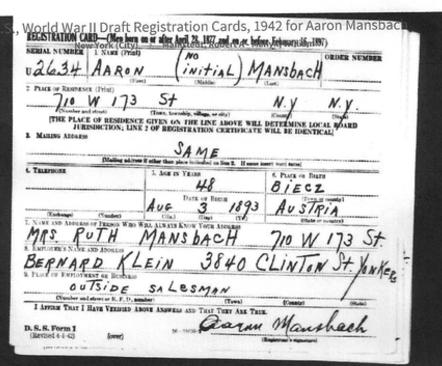 U.S., World War II Draft Registration Cards, 1942 for Aaron Mansbach
REGISTRATION CARD—(Men born on or after April 28, 1877 and on or before February 16, 1897)
New York (City)
SERIAL NUMBER 1. NAME (Print) ORDER NUMBER
U2634 AARON (NO INITIAL) MANSBACH
(First) (Middle) (Last)
2. PLACE OF RESIDENCE (Print)
710 W 173 St N.Y N.Y.
(Number and street) (Town, township, village, or city) (County) (State)
[THE PLACE OF RESIDENCE GIVEN ON THE LINE ABOVE WILL DETERMINE LOCAL BOARD
JURISDICTION; LINE 2 OF REGISTRATION CERTIFICATE WILL BE IDENTICAL]
3. MAILING ADDRESS
SAME
[Mailing address if other than place indicated on line 2. If same insert word same]
4. TELEPHONE 5. AGE IN YEARS 6. PLACE OF BIRTH
48 BIECZ
DATE OF BIRTH (Town or county)
AUG 3 1893 AUSTRIA
(Exchange) (Number) (Mo.) (Day) (Yr.) (State or country)
7. NAME AND ADDRESS OF PERSON WHO WILL ALWAYS KNOW YOUR ADDRESS
MRS RUTH MANSBACH 710 W 173 St.
8. EMPLOYER'S NAME AND ADDRESS
BERNARD KLEIN 3840 CLINTON St. YONKERS
9. PLACE OF EMPLOYMENT OR BUSINESS
OUTSIDE SALESMAN
(Number and street or R. F. D. number) (Town) (County) (State)
I AFFIRM THAT I HAVE VERIFIED ABOVE ANSWERS AND THAT THEY ARE TRUE.
D. S. S. Form 1
(Revised 4-1-42) (over) Aaron Mansbach
(Registrant's signature)